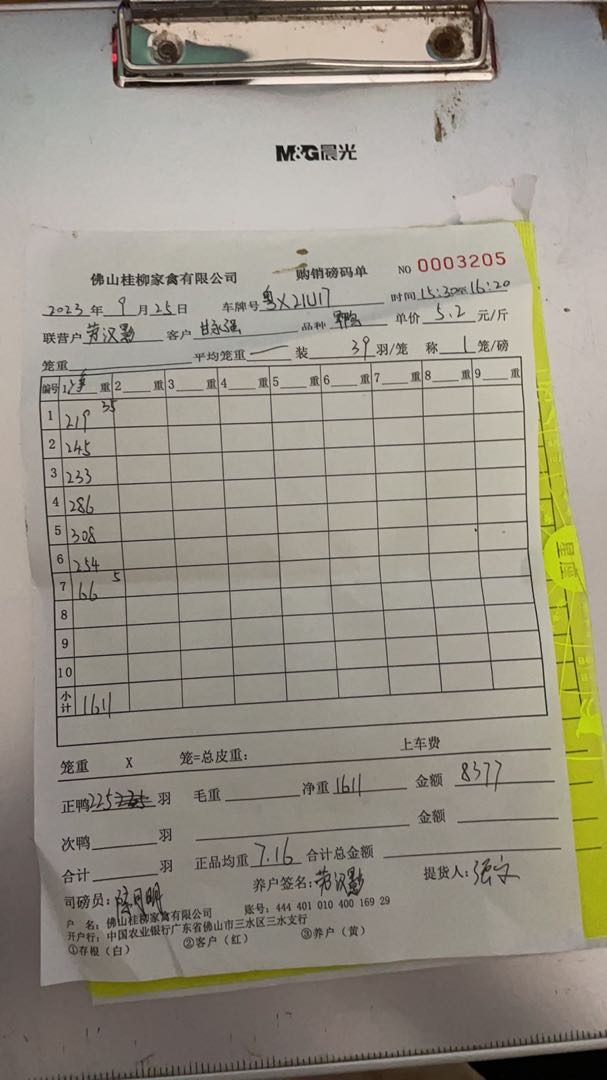 M&G晨光
佛山桂柳家禽有限公司 购销磅码单 NO 0003205
2023年 9月25日 车牌号 粤X21U17 时间 15:30 16:20
联营户 客户 甘永强 品种 单价 5.2 元/斤
笼重 平均笼重 一 装 39 羽/笼 称 1 笼/磅
编号 1 重 2 重 3 重 4 重 5 重 6 重 7 重 8 重 9 重
1 219 35
2 245
3 233
4 286
5 308
6 254
7 66 5
8
9
10
小计 1611
笼重 X 笼=总皮重: 上车费
正鸭 225 羽 毛重 净重 1611 金额 8377
次鸭 羽 金额
合计 羽 正品均重 7.16 合计总金额
司磅员: 养户签名: 提货人:
户 名: 佛山桂柳家禽有限公司 账号: 444 401 010 400 169 29
开户行: 中国农业银行广东省佛山市三水区三水支行
①存根(白) ②客户(红) ③养户(黄)
星座